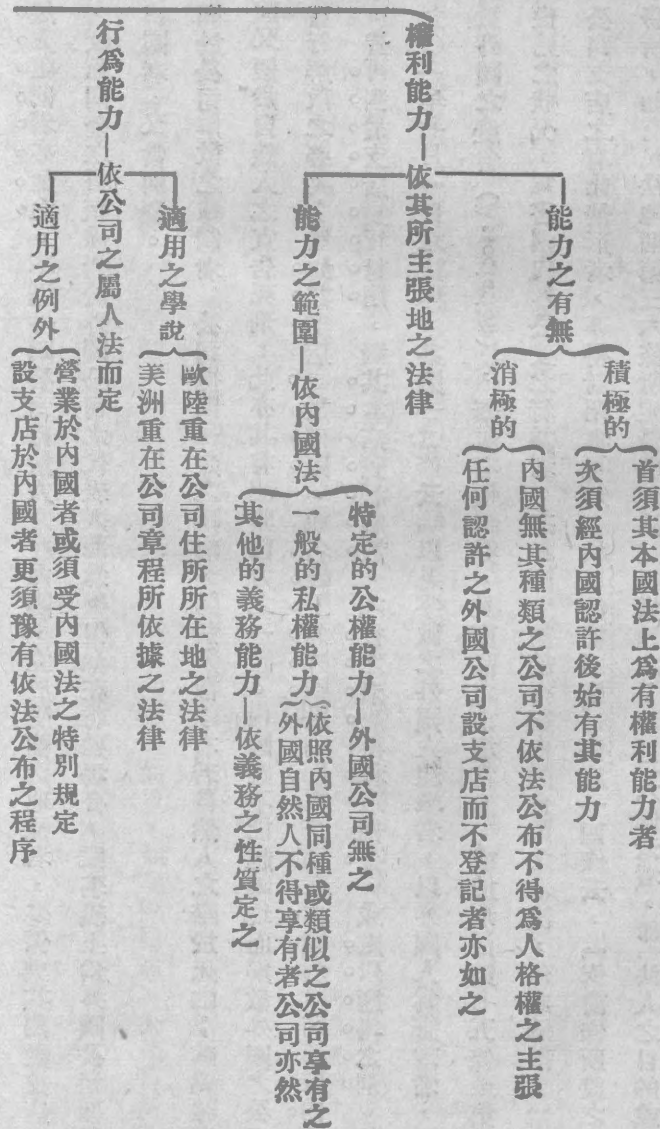 權利能力—依其所主張地之法律
能力之有無
積極的
首須其本國法上爲有權利能力者
次須經內國認許後始有其能力
消極的
內國無其種類之公司不依法公布不得爲人格權之主張
任何認許之外國公司設支店而不登記者亦如之
能力之範圍—依內國法
特定的公權能力—外國公司無之
一般的私權能力
依照內國同種或類似之公司享有之
外國自然人不得享有者公司亦然
其他的義務能力—依義務之性質定之
行爲能力—依公司之屬人法而定
適用之學說
歐陸重在公司住所所在地之法律
美洲重在公司章程所依據之法律
適用之例外
營業於內國者或須受內國法之特別規定
設支店於內國者更須豫有依法公布之程序